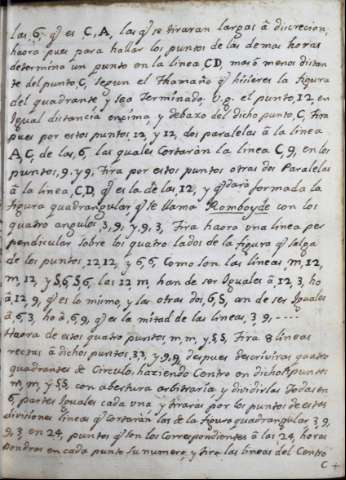 las, 6, q̃ es C, A, las q̃ se tiraran largas â discrecion,
haora pues para hallar los puntos de las demas horas
determina un punto en la linea, CD, mas ô menos distan
te del punto, C, segun el Thamaño q̃ hisieres la figura
del quadrante, y sea Terminado. V.g. el punto, 12, en
Igual distancia encima, y debaxo del dicho punto, C, tira
pues por estos puntos 12, y 12, dos paralelas â la linea
A, C, de las, 6, las quales Cortarân la linea C, 9, en los
puntos, 9, y 9, tira por estos puntos otras dos Paralelas
â la linea, CD, q̃ es la de las, 12, y q̃dará formada la
figura quadrangular, q̃ se llama Romboyde con los
quatro angulos, 3, 9, y 9, 3, Tira haora una linea per
pendicular sobre los quatro lados de la figura q̃ salga
de los puntos, 12 12, y 6, 6, Como son las lineas, m, 12,
m, 12, y §, 6, §, 6, las 12 m, han de ser Iguales â, 12, 3, ho
â, 12, 9, q̃ es lo mismo, y las otras dos, 6, §, an de ser Iguales
â, 6, 3, ho â, 6, 9, q̃ es la mitad de las lineas, 3 9, ----
Haora de estos quatro puntos m m, y § §, Tira 8 lineas
rectas â dichos puntos, 3 3, y 9, 9, despues descriviras quatro
quadrantes de Circulo, haziendo Centro en dichos puntos
m, m, y §§, con abertura arbitraria, y dividirlas todas en
6, partes Iguales cada una, y tiraras por los puntos de estas
divisiones lineas q̃ Cortarân las de la figura quadrangular, 3, 9,
9, 3, en 24, puntos q̃ son los Correspondientes â las, 24, horas
pondras en cada punto su numero, y tira las lineas del Centro
C